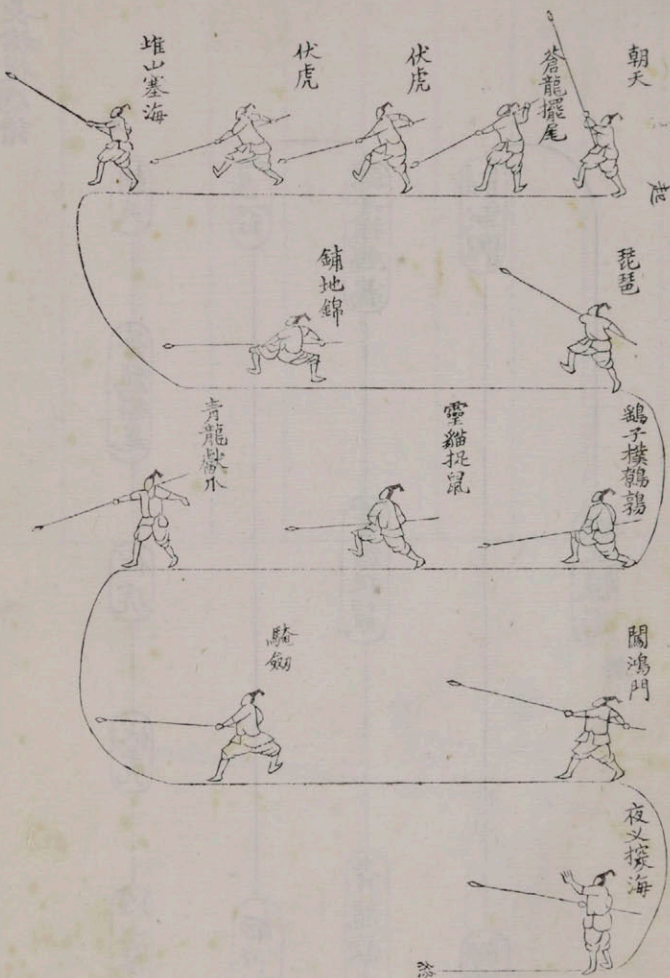 起
朝天
蒼龍擺尾
伏虎
伏虎
堆山塞海
琵琶
鋪地錦
鷂子撲鵪鶉
靈貓捉鼠
青龍獻爪
闖鴻門
騎劒
夜叉探海
終